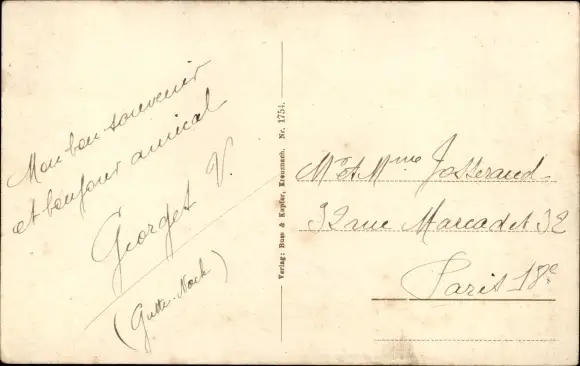 Mon bon souvenir
et bonjour amical
Georget V.
Verlag: Buss & Kupfer, Kreuznach. Nr. 1754.
Mr et Mme Josserand
32 rue Marcadet 32
Paris 18e